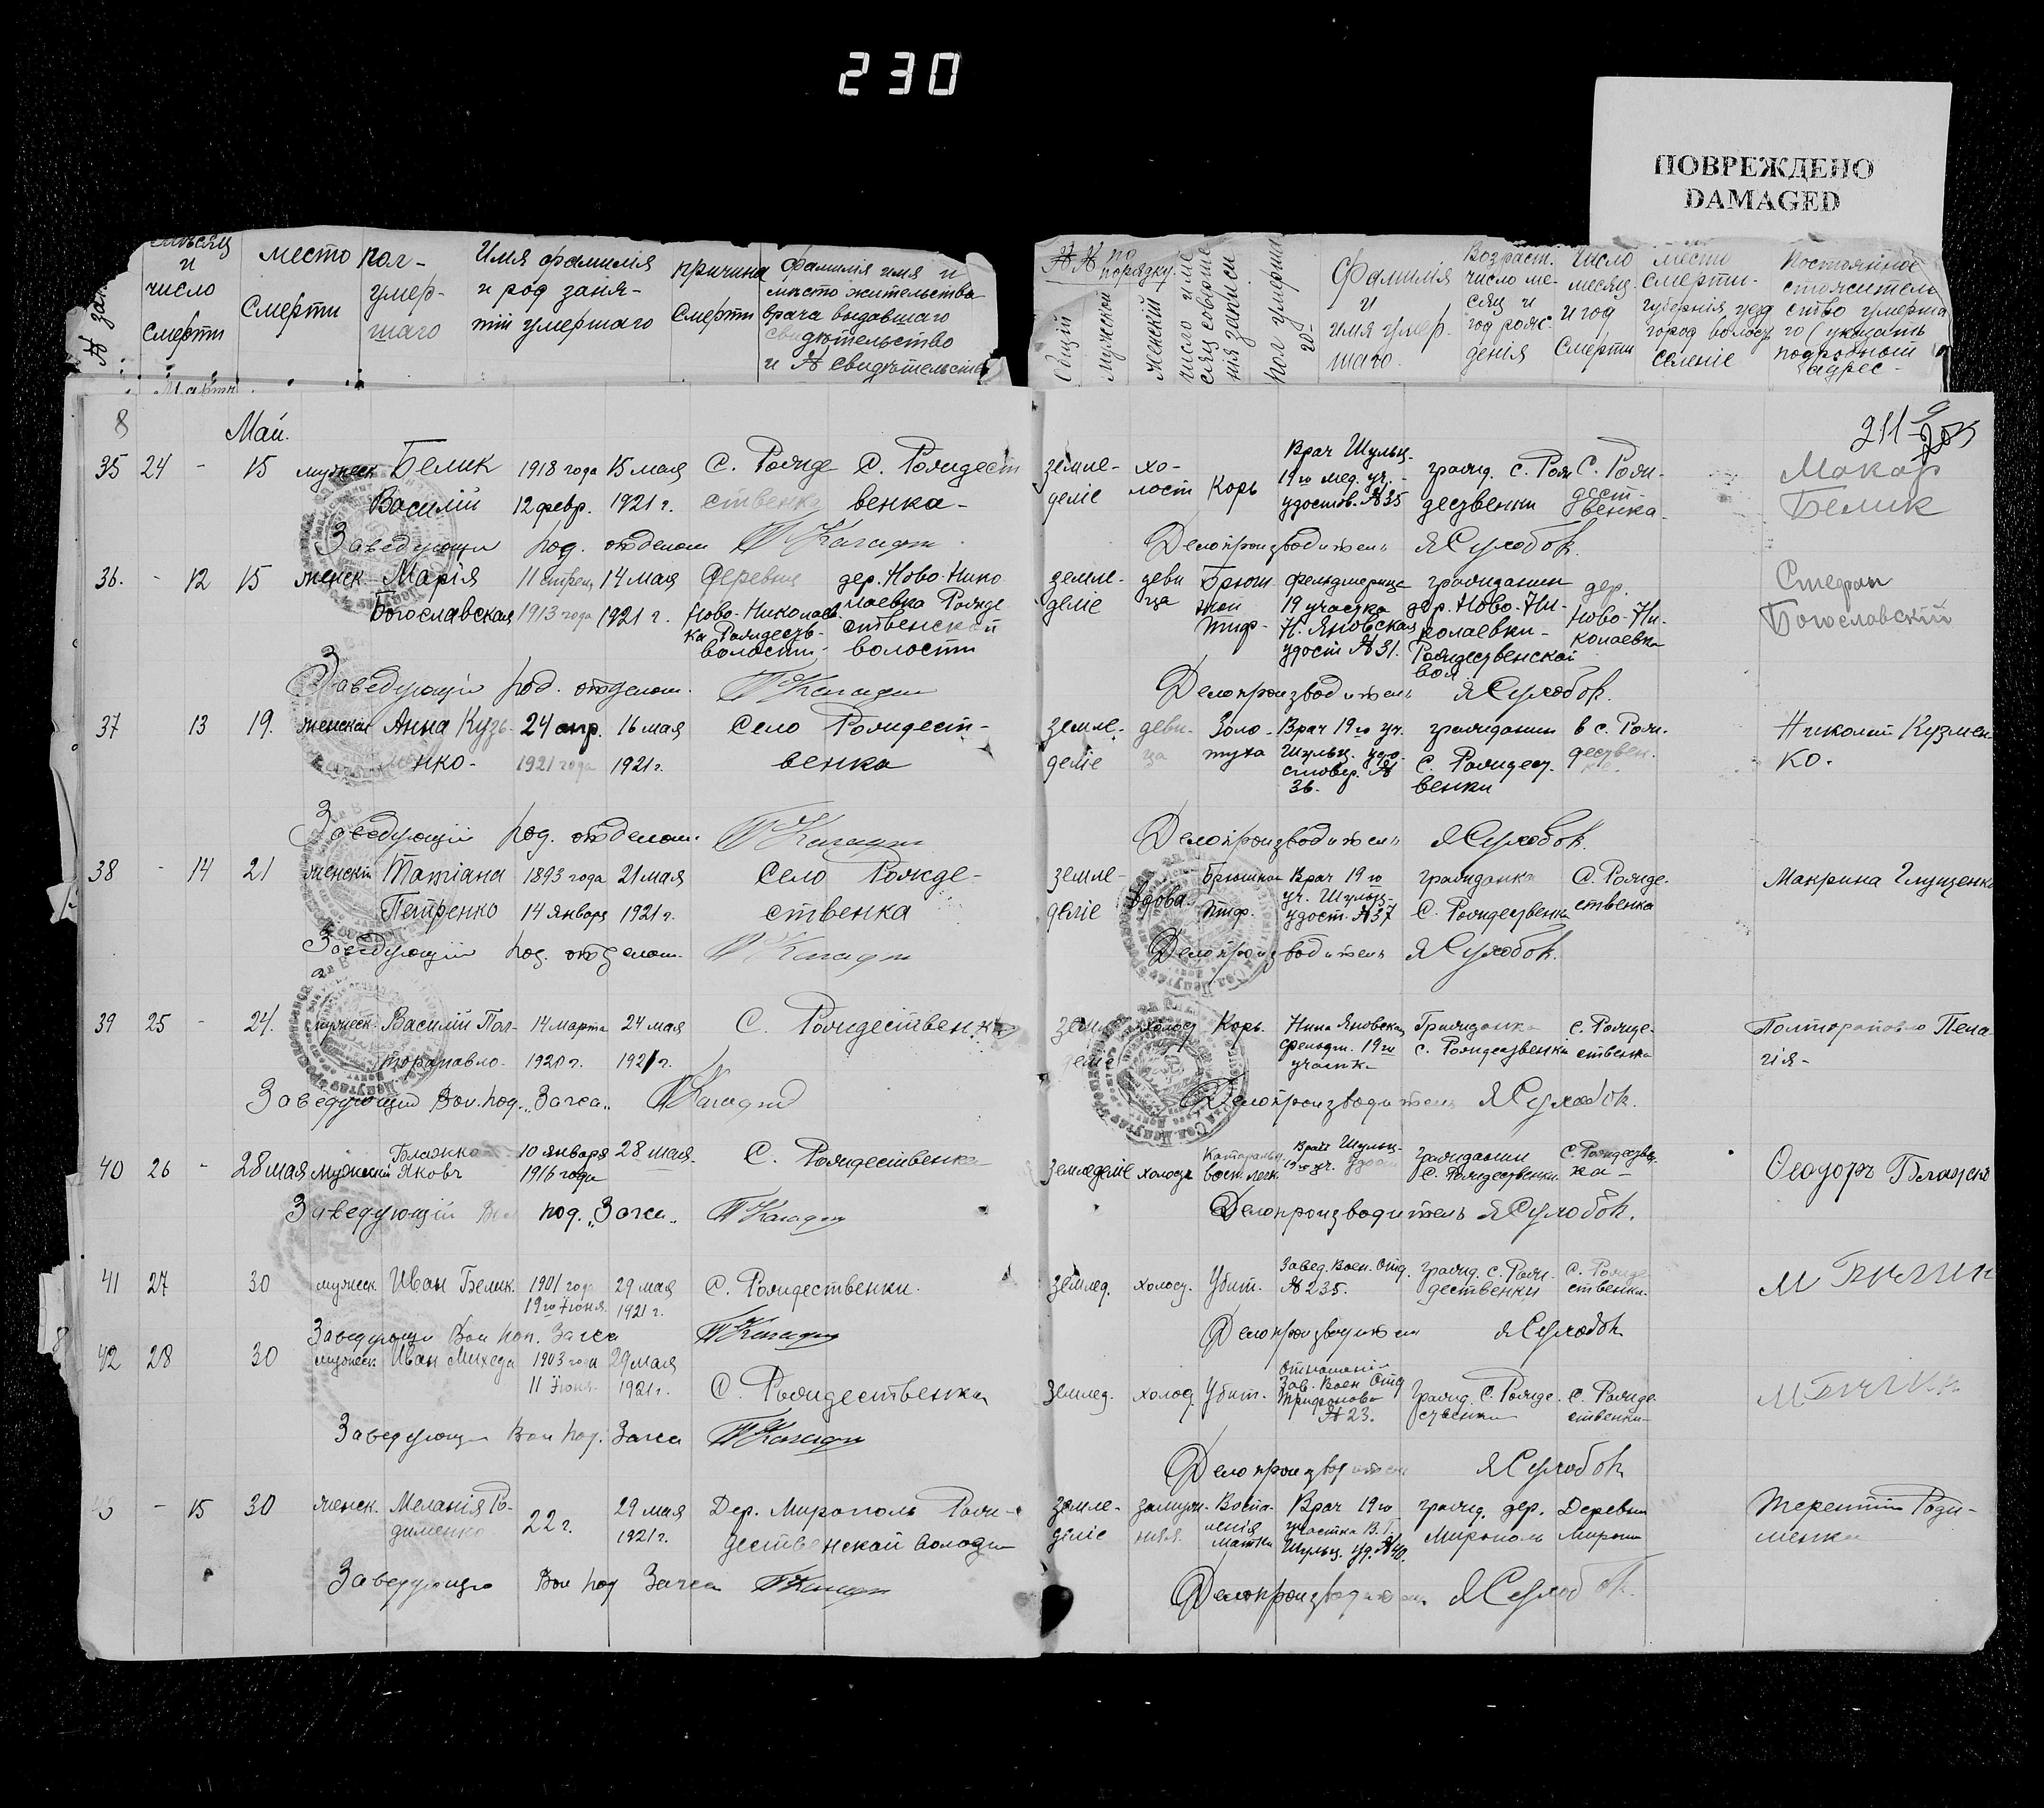 230
ПОВРЕЖДЕНО
DAMAGED
месяц и число смерти
место смерти
пол умершаго
Имя фамилія и род заня- тій умершаго
причина смерти
Фамилія имя и место жительства врача выдавшаго свидѣтельство и № свидѣтельства
№№ по порядку
Общій
мужской
женскій
число и ме сяц соверше нія записи
пол умерша го
Фамилія и имя умер- шаго
Возраст. число ме- сяц и год рож- денія
Число месяц и год смерти
место смерти- губернія, уезд город волость селеніе
Постоянное жител ство умерша го (указать подробный адрес-
8
Май.
211
35 24 - 15 мужеск Белик 1918 года 15 мая С. Рожде С. Рождест
Василій 12 февр. 1921 г. ственка венка-
земле- деліе хо- лост Корь Врач Шульц- 19го мед. уч.- удостов. №35 гражд. С. Рож дественки С. Рож- дест- венка- Макар Белик
Заведующи под. отделом
Делопроизводитель ЯСухобок.
36. - 12 15 женск- Марія 11 1913 года 14 мая деревня дер. Ново-Нико
Богославская 1921 г. Ново-Николаев ка Рождеств- волости- лаевка Рожде ственской волости
земле- деліе деви ца Брюш ной тиф- фельдшерица 19 участка Н. Яновская удост №31. гражданин дер. Ново-Ни- колаевки- Рождественской вол. дер. Ново-Ни- колаевка Стефан Богославскій
Заведующій под. отделом.
Делопроизводитель ЯСухобок.
37 13 19. женская Анна Кузь- 24 апр. 16 мая Село Рождест-
менко- 1921 года 1921 г. венка
земле- деліе деви- ца Золо- туха Врач 19го уч. Шульц. удо- стовер. № 36. гражданин С. Рождест- венки в с. Рож- дествен- ке. Николай Кузмен ко.
Заведующій под. отделом.
Делопроизводитель ЯСухобок.
38 - 14 21 женскій Татіана 1893 года 21 мая Село Рожде-
Петренко 14 января 1921 г. ственка
земле- деліе вдова Брюшной тиф. Врач 19го уч. Шульц- удост. №37 гражданка С. Рождественка С. Рожде- ственка Макрина Глущенко
Заведующій под. отделом.
Делопроизводитель ЯСухобок.
39 25 - 24. мужеск. Василій Пол- 14 марта 24 мая С. Рождественка
торапавло- 1920 г. 1921 г.
земле деліе холост Корь. Нина Яновская фельдш. 19го участка Гражданка С. Рождественки С. Рожде- ственка Полторапавло Пела гія-
Заведующій Вол. под. „Загса„
Делопроизводитель ЯСухобок.
40 26 - 28 мая мужской Блажко 10 января 28 мая- С. Рождественка
Яковъ 1916 года
земледеліе холост Катаральн. восп. легк. Врач Шульц- 19го уч. удост гражданин С. Рождественки С. Рождествен ка- Феодоръ Блажко
Заведующій Вол под. „Загса„
Делопроизводитель ЯСухобок.
41 27 30 мужеск. Иван Белик. 1901 года 29 мая С. Рождественки.
19го Іюня. 1921 г.
землед. холост. Убит. Завед. Воен. Отд. №235. гражд. С. Рож- дественки С. Рожде ственки. М Билик
Заведующи Вол под. Загса
Делопроизводител ЯСухобок
42 28 30 мужеск. Иван Михеда 1903 года 29 мая
11 Іюня. 1921 г. С. Рождественка
землед. холост. Убит. Отношеніе Зав. Воен Отд Трифоново №23. Гражд. С. Рожде ственки С. Рожде- ственки-
Заведующи Вол под. Загса
Делопроизводител ЯСухобок
43 - 15 30 женск. Меланія Ро- 22 г. 29 мая Дер. Мирополь Рож-
дименко 1921 г. дественской волости
земле- деліе замуж- няя. Воспа- ленія матки Врач 19го участка В.Г. Шульц. уд. №40. гражд. дер. Мирополь Деревни Мироп Терентій Роди- менко
Заведующій Вол под Загса
Делопроизводитель ЯСухобок.